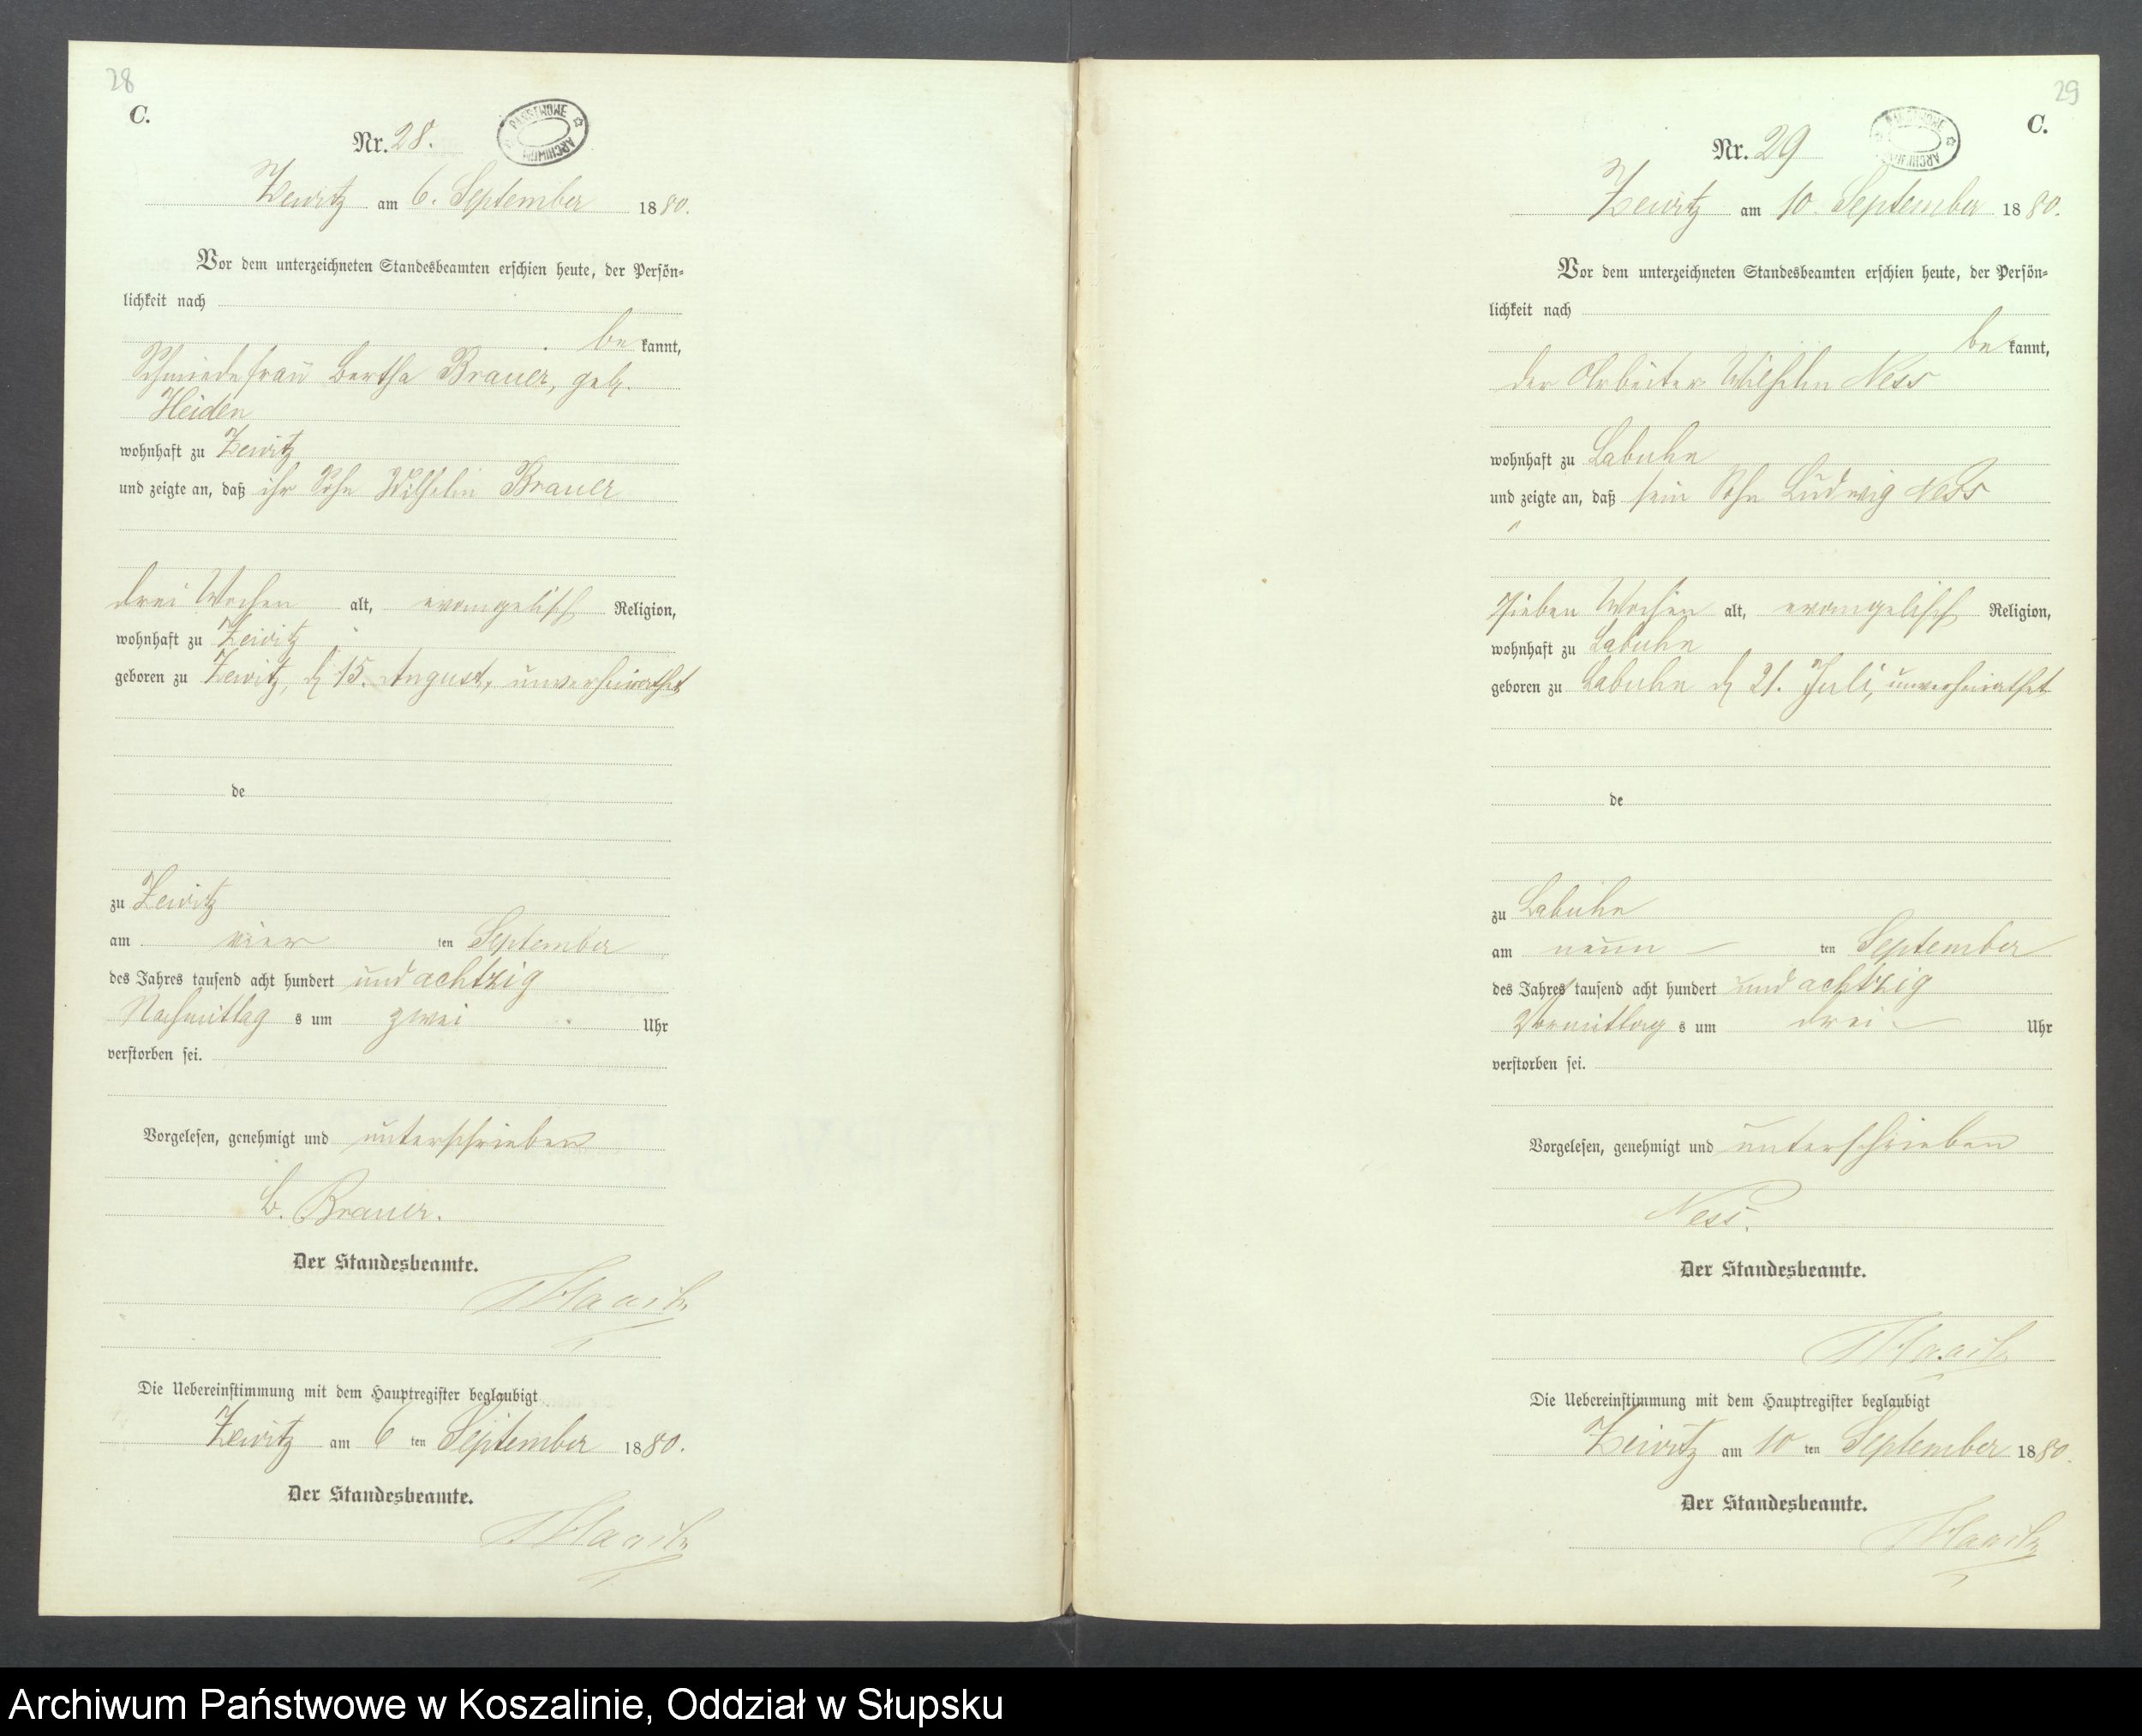 28
C.
Nr. 28.
PAŃSTWOWE ARCHIWUM
Zewitz am 6. September 1880.
Vor dem unterzeichneten Standesbeamten erschien heute, der Persön=
lichkeit nach
be kannt,
Schmiedefrau Bertha Brauer, geb.
Heiden
wohnhaft zu Zewitz
und zeigte an, daß ihr Sohn Wilhelm Brauer
drei Wochen alt, evangelisch Religion,
wohnhaft zu Zewitz
geboren zu Zewitz, d 15. August, unverheirathet
de
zu Zewitz
am vier ten September
des Jahres tausend acht hundert und achtzig
Nachmittag s um zwei Uhr
verstorben sei.
Vorgelesen, genehmigt und unterschrieben
B. Brauer.
Der Standesbeamte.
Die Uebereinstimmung mit dem Hauptregister beglaubigt
Zewitz am 6 ten September 1880.
Der Standesbeamte.
29
C.
Nr. 29
PAŃSTWOWE ARCHIWUM
Zewitz am 10. September 1880.
Vor dem unterzeichneten Standesbeamten erschien heute, der Persön=
lichkeit nach
be kannt,
der Arbeiter Wilhelm Ness
wohnhaft zu Labuhn
und zeigte an, daß sein Sohn Ludwig Ness
sieben Wochen alt, evangelisch Religion,
wohnhaft zu Labuhn
geboren zu Labuhn d 21. Juli, unverheirathet
de
zu Labuhn
am neun ten September
des Jahres tausend acht hundert und achtzig
Vormittag s um drei Uhr
verstorben sei.
Vorgelesen, genehmigt und unterschrieben
Ness.
Der Standesbeamte.
Die Uebereinstimmung mit dem Hauptregister beglaubigt
Zewitz am 10 ten September 1880.
Der Standesbeamte.
Archiwum Państwowe w Koszalinie, Oddział w Słupsku